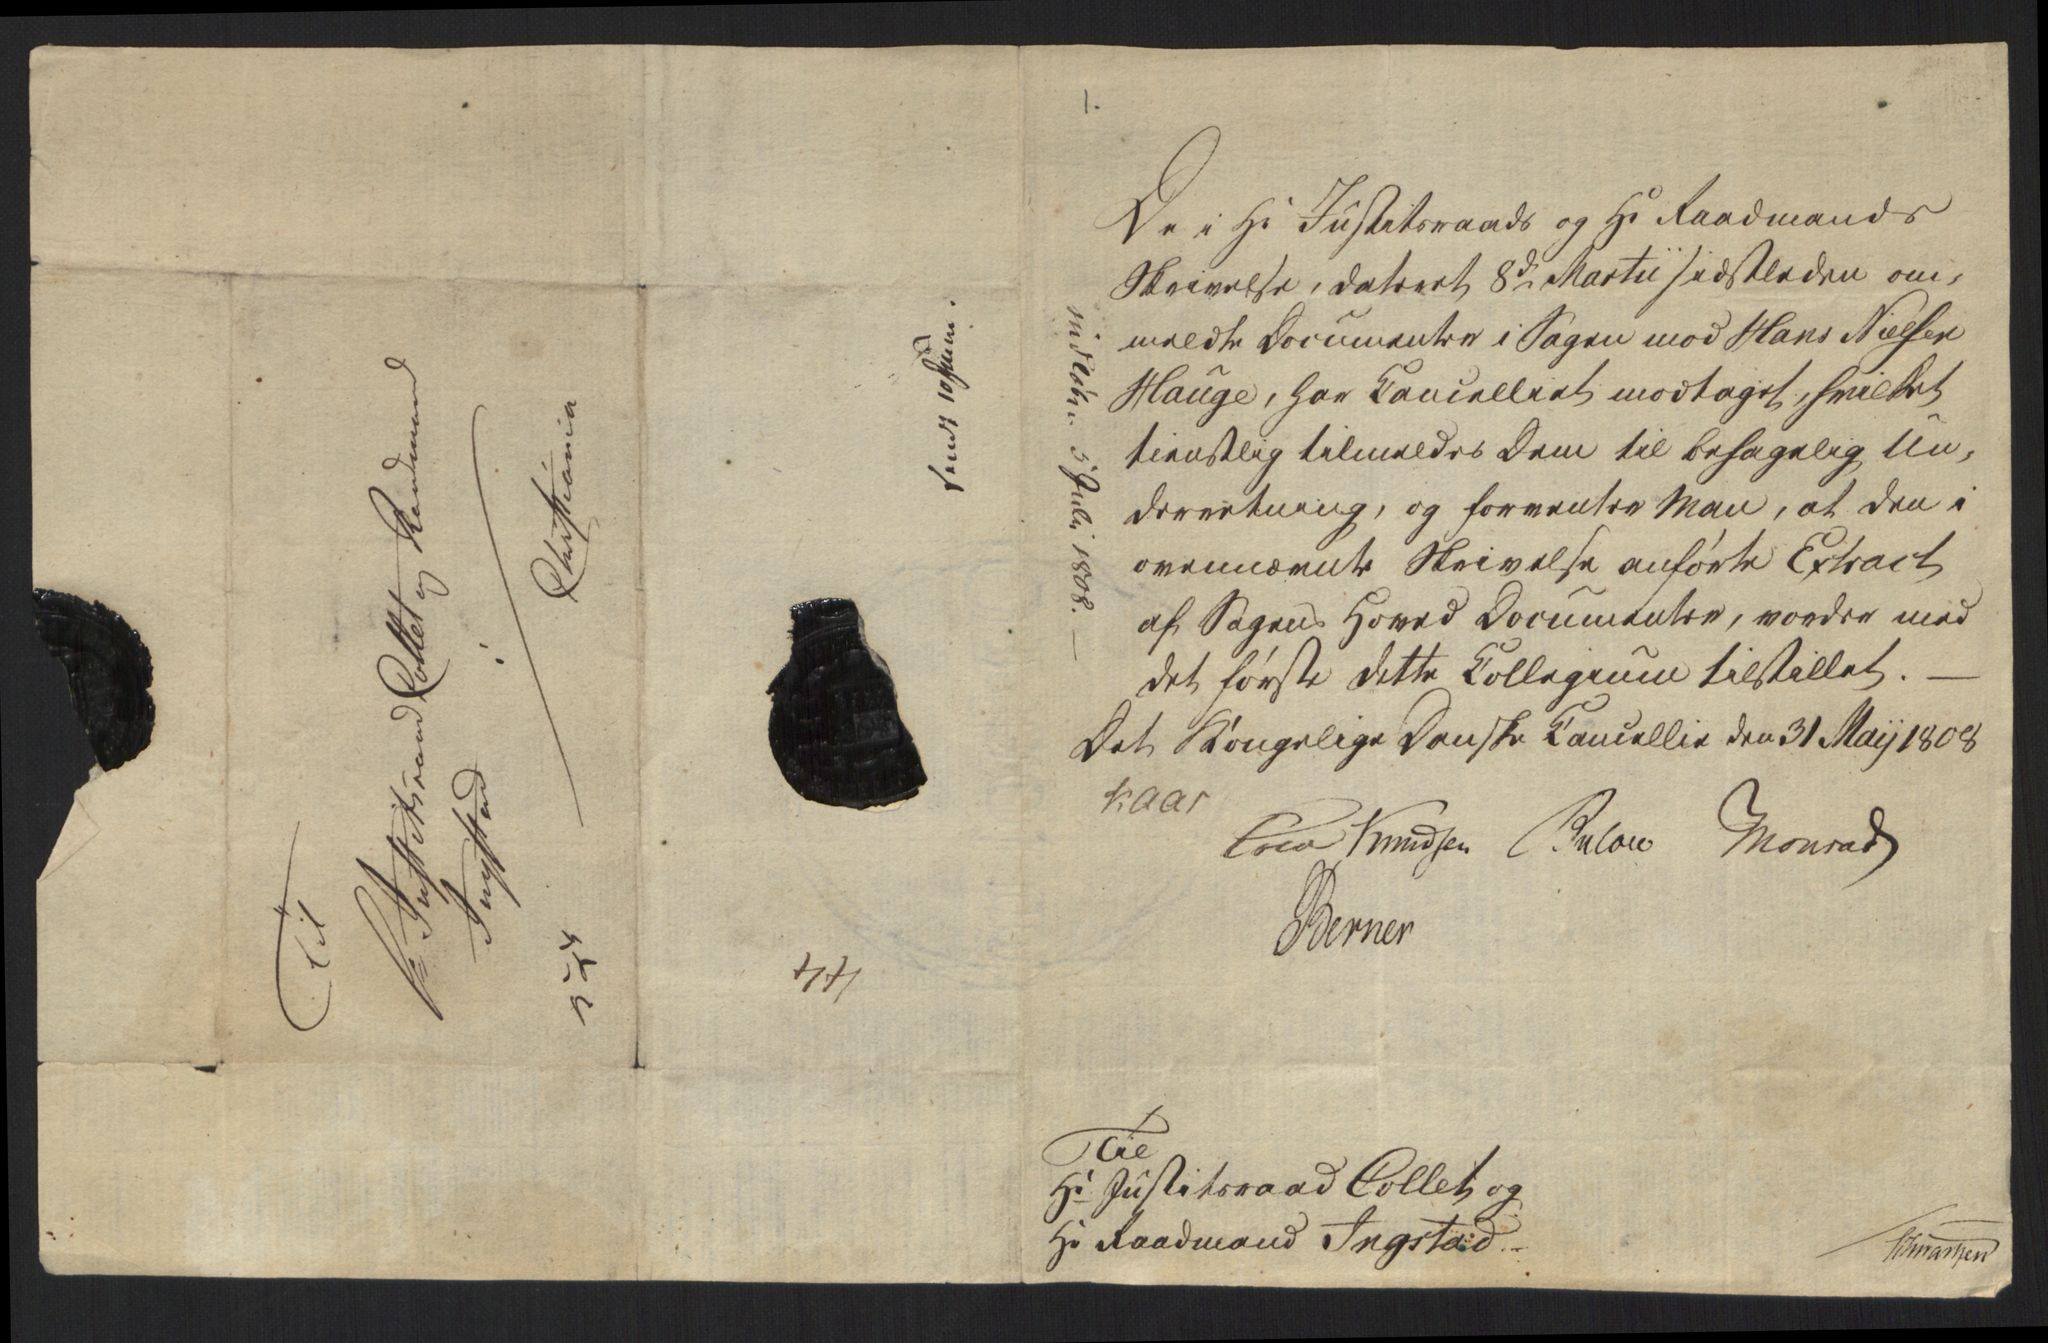 Til
Hr Justitsraad Collet og Raadmand
Ingstad
i
Christiania
44
1.
indkom 5 Juli 1808. —
De i Hr Justitsraads og Hr Raadmands
Skrivelse, dateret 8d Martii sidstleden om-
meldte Documenter i Sagen mod Hans Nielsen
Hauge, har Cancelliet modtaget, hvilket
tienstlig tilmeldes Dem til behagelig Un-
derretning, og forventer Man, at den i
ovennævnte Skrivelse anførte Extract
af Sagens Hoved Documenter, vorder med
det første dette Collegium tilstillet. —
Det Kongelige Danske Cancellie den 31 Maij 1808
Kaas
Cold Knudsen Bülow Monrad
Berner
Til
Hr Justitsraad Collet og
Hr Raadmand Ingstad. —